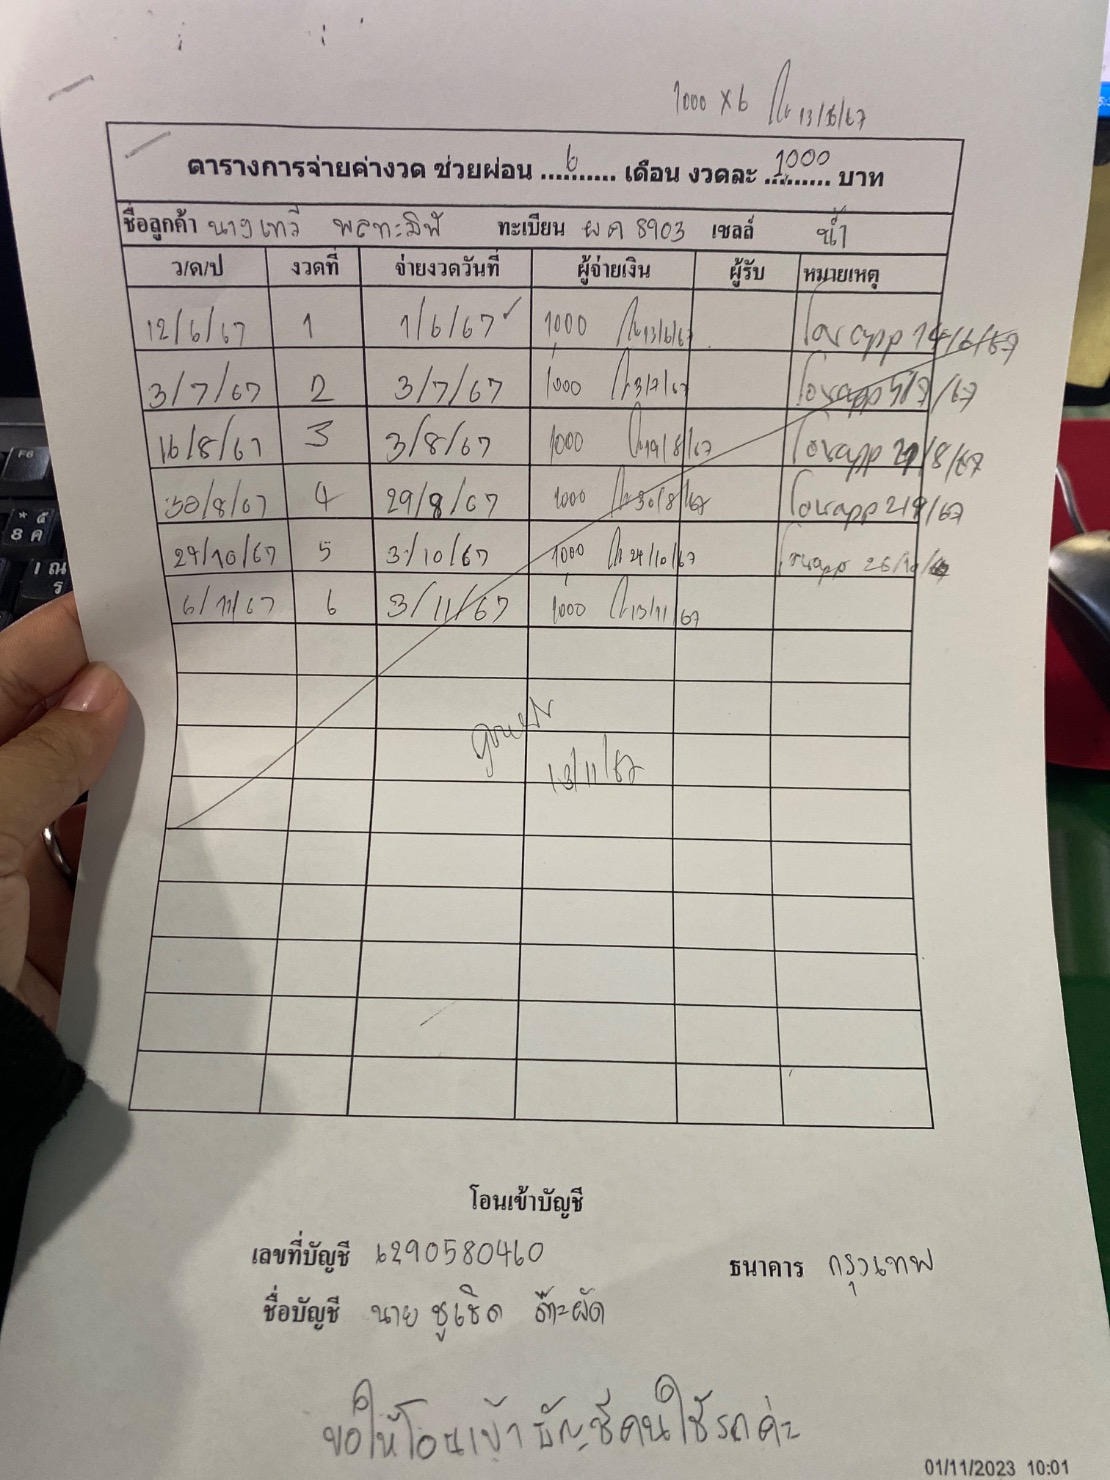 1000 x 6 13/6/67
ตารางการจ่ายค่างวด ช่วยผ่อน ....6...... เดือน งวดละ ..1000.. บาท
ชื่อลูกค้า นางเทวี ทะเบียน ผค 8903 เซลล์ น้ำ
ว/ด/ป งวดที่ จ่ายงวดวันที่ ผู้จ่ายเงิน ผู้รับ หมายเหตุ
12/6/67 1 1/6/67 ✓ 1000 13/6/67 โอน app 14/6/67
3/7/67 2 3/7/67 1000 3/7/67 โอน app 5/7/67
16/8/67 3 3/8/67 1000 19/8/67 โอน app 21/8/67
30/8/67 4 29/8/67 1000 30/8/67 โอน app 2/9/67
24/10/67 5 3/10/67 1000 24/10/67 โอน app 26/10/67
6/11/67 6 3/11/67 1000 13/11/67
13/11/67
โอนเข้าบัญชี
เลขที่บัญชี 6290580460 ธนาคาร กรุงเทพ
ชื่อบัญชี นาย ชูเชิด
ขอให้โอนเข้าบัญชีคนใช้รถค่ะ
01/11/2023 10:01